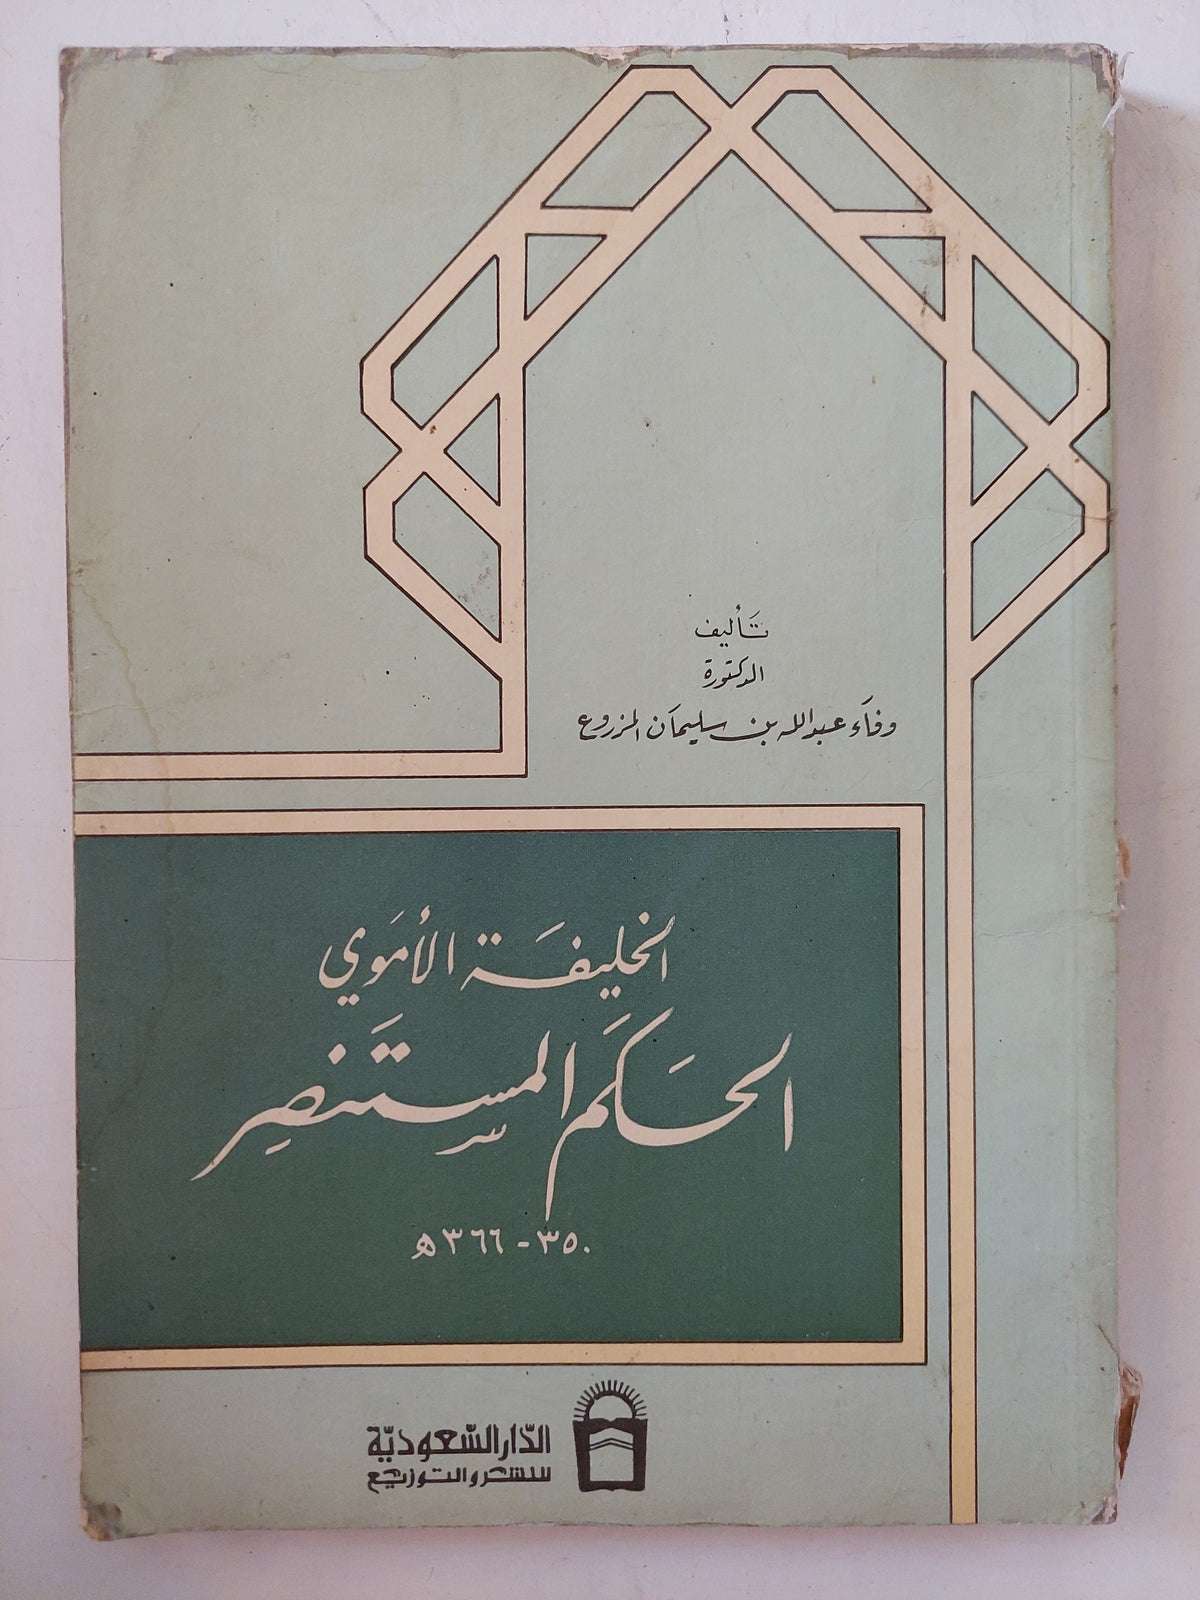 تأليف
الدكتورة
وفاء عبدالله بن سليمان المزروع
الخليفة الأموي
الحكم المستنصر
٣٥٠ - ٣٦٦ هـ
الدار السعودية
للنشر والتوزيع